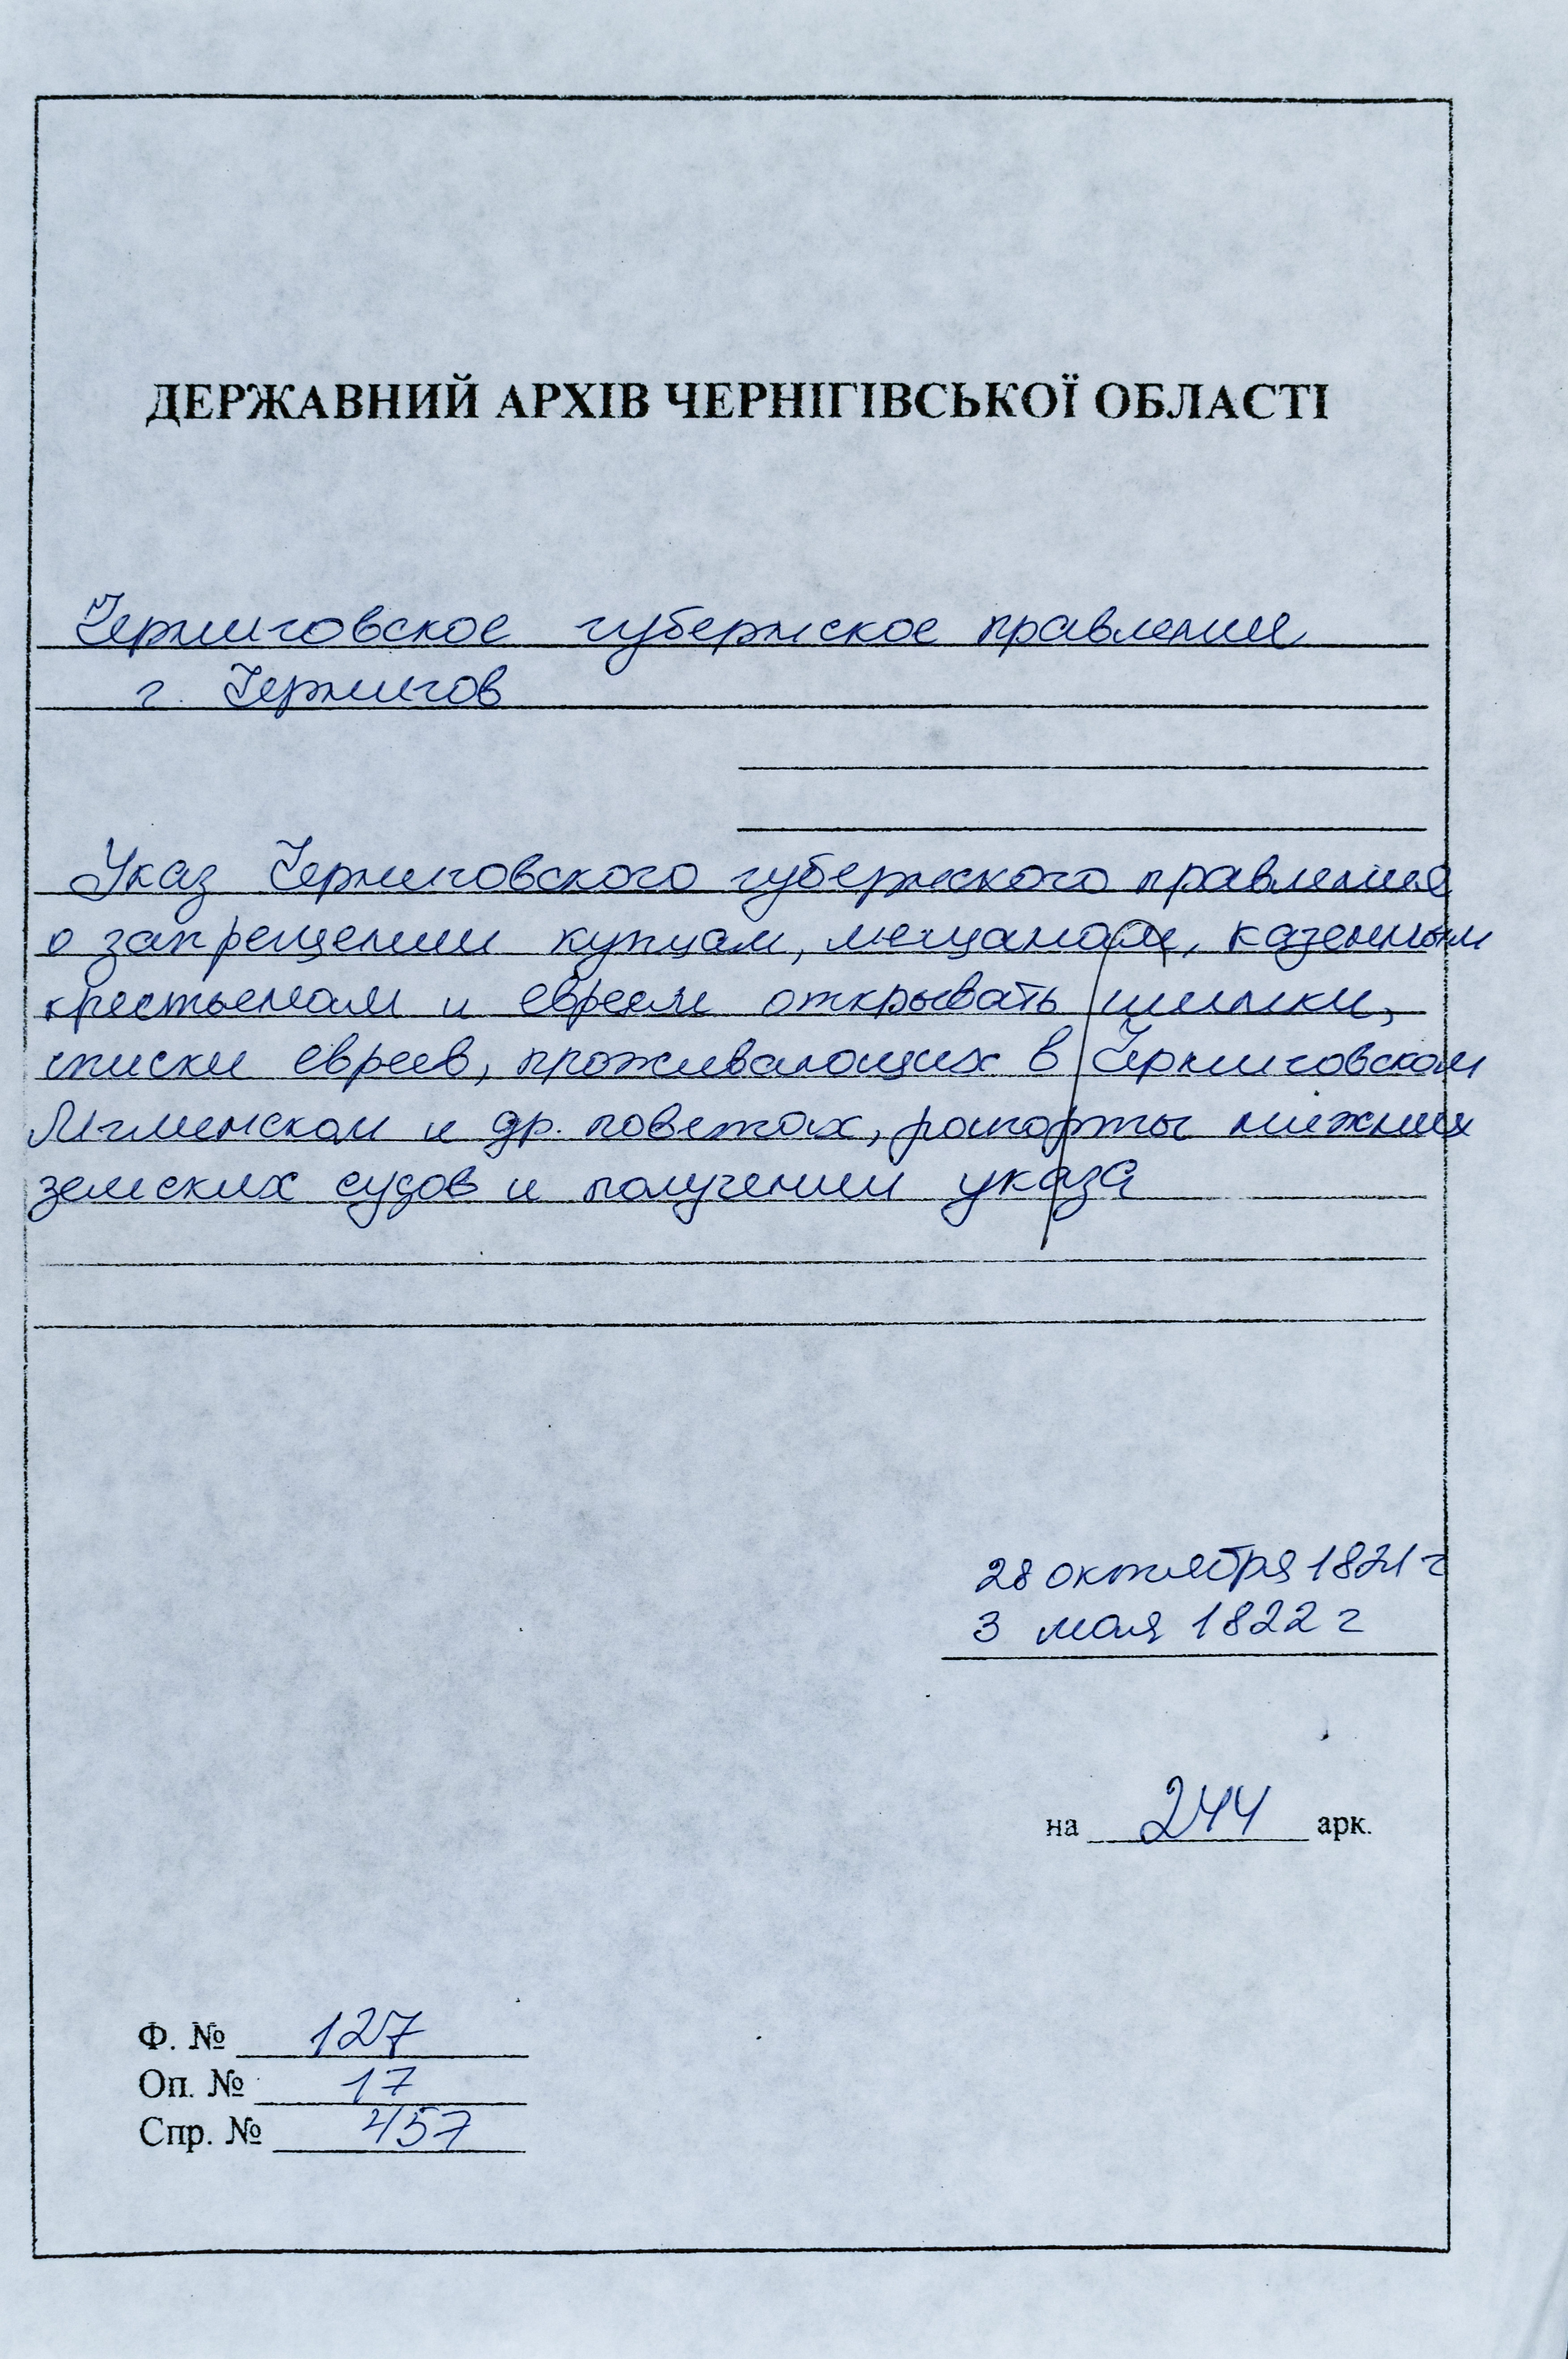 ДЕРЖАВНИЙ АРХІВ ЧЕРНІГІВСЬКОЇ ОБЛАСТІ
Черниговское губернское правление
г. Чернигов
Указ Черниговского губернского правления
о запрещении купцам, мещанам, казенным
крестьенам и евреям открывать шинки,
списки евреев, проживающих в Черниговском
Мглинском и др. поветах, рапорты нижних
земских судов и получении указа
28 октября 1821 г
3 мая 1822 г
на 244 арк.
Ф. № 127
Оп. № 17
Спр. № 457